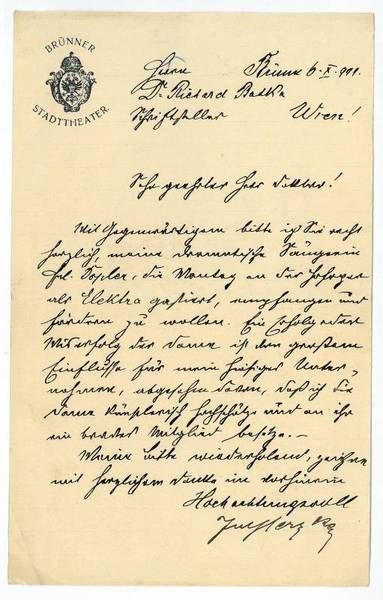 BRÜNNER
STADTTHEATER
Herrn Brünn 6. X. 911.
Dr. Richard Batka
Schriftsteller Wien!
Sehr geehrter Herr Doktor!
Mit Gegenwärtigem bitte ich Sie recht
herzlich, meine dramatische Sängerin
Frl. die Montag an der Hofoper
als Elektra gastiert, empfangen und
fördern zu wollen. Ein Erfolg oder
Mißerfolg der Dame ist von großem
Einflusse für mein hiesiges Unter-
nehmen, abgesehen davon, daß ich die
Dame künstlerisch hochschätze und an ihr
ein braves Mitglied besitze.-
Meine Bitte wiederholend, zeichne
mit herzlichem Danke im vorhinein
Hochachtungsvoll